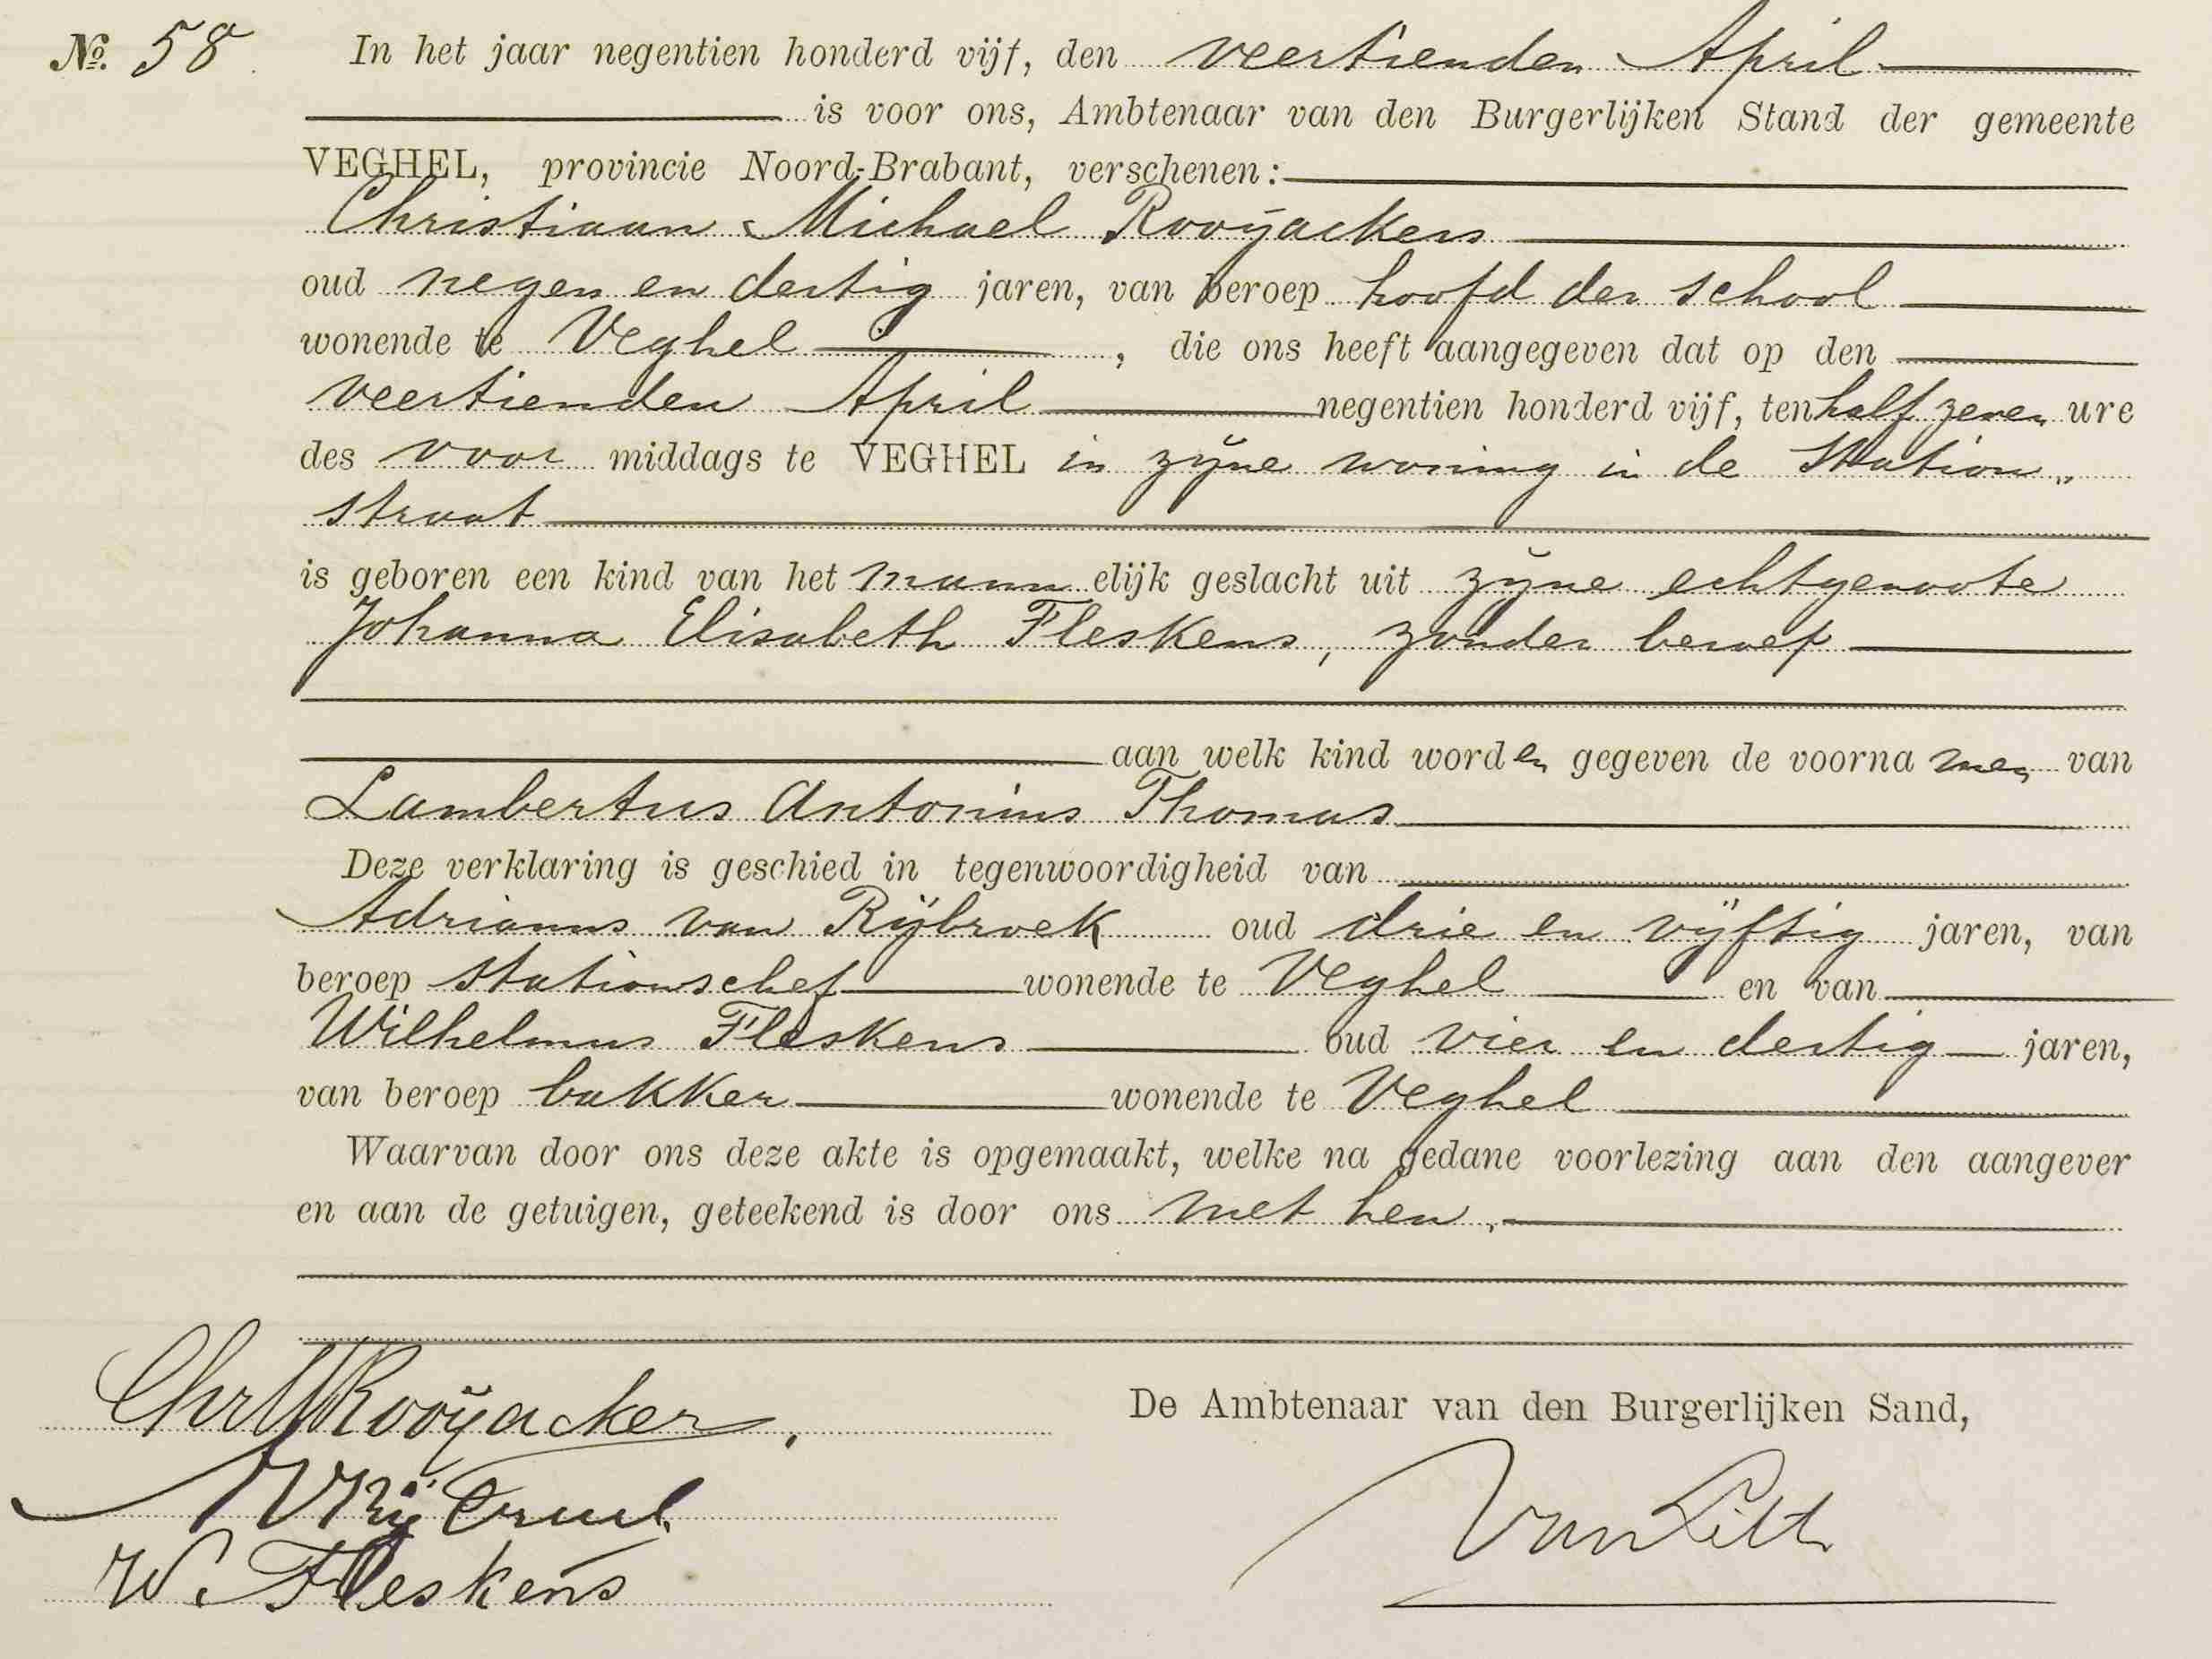 №. 58. In het jaar negentien honderd vijf, den veertienden April
is voor ons, Ambtenaar van den Burgerlijken Stand der gemeente
VEGHEL, provincie Noord-Brabant, verschenen:
Christiaan Michael Rooÿackers
oud negen en dertig jaren, van beroep hoofd der school
wonende te Veghel, die ons heeft aangegeven dat op den
veertienden April negentien honderd vijf, ten half zeven ure
des voor middags te VEGHEL in zÿne woning in de Station„
straat
is geboren een kind van het mann elijk geslacht uit zÿne echtgenoote
Johanna Elisabeth Fleskens, zonder beroep
aan welk kind worden gegeven de voorna men van
Lambertus Antonius Thomas
Deze verklaring is geschied in tegenwoordigheid van
Adrianus van Rÿbroek oud drie en vÿftig jaren, van
beroep stationschef wonende te Veghel en van
Wilhelmus Fleskens oud vier en dertig jaren,
van beroep bakker wonende te Veghel
Waarvan door ons deze akte is opgemaakt, welke na gedane voorlezing aan den aangever
en aan de getuigen, geteekend is door ons met hen.
De Ambtenaar van den Burgerlijken Sand,
Chr M Rooÿackers.
W. Fleskens